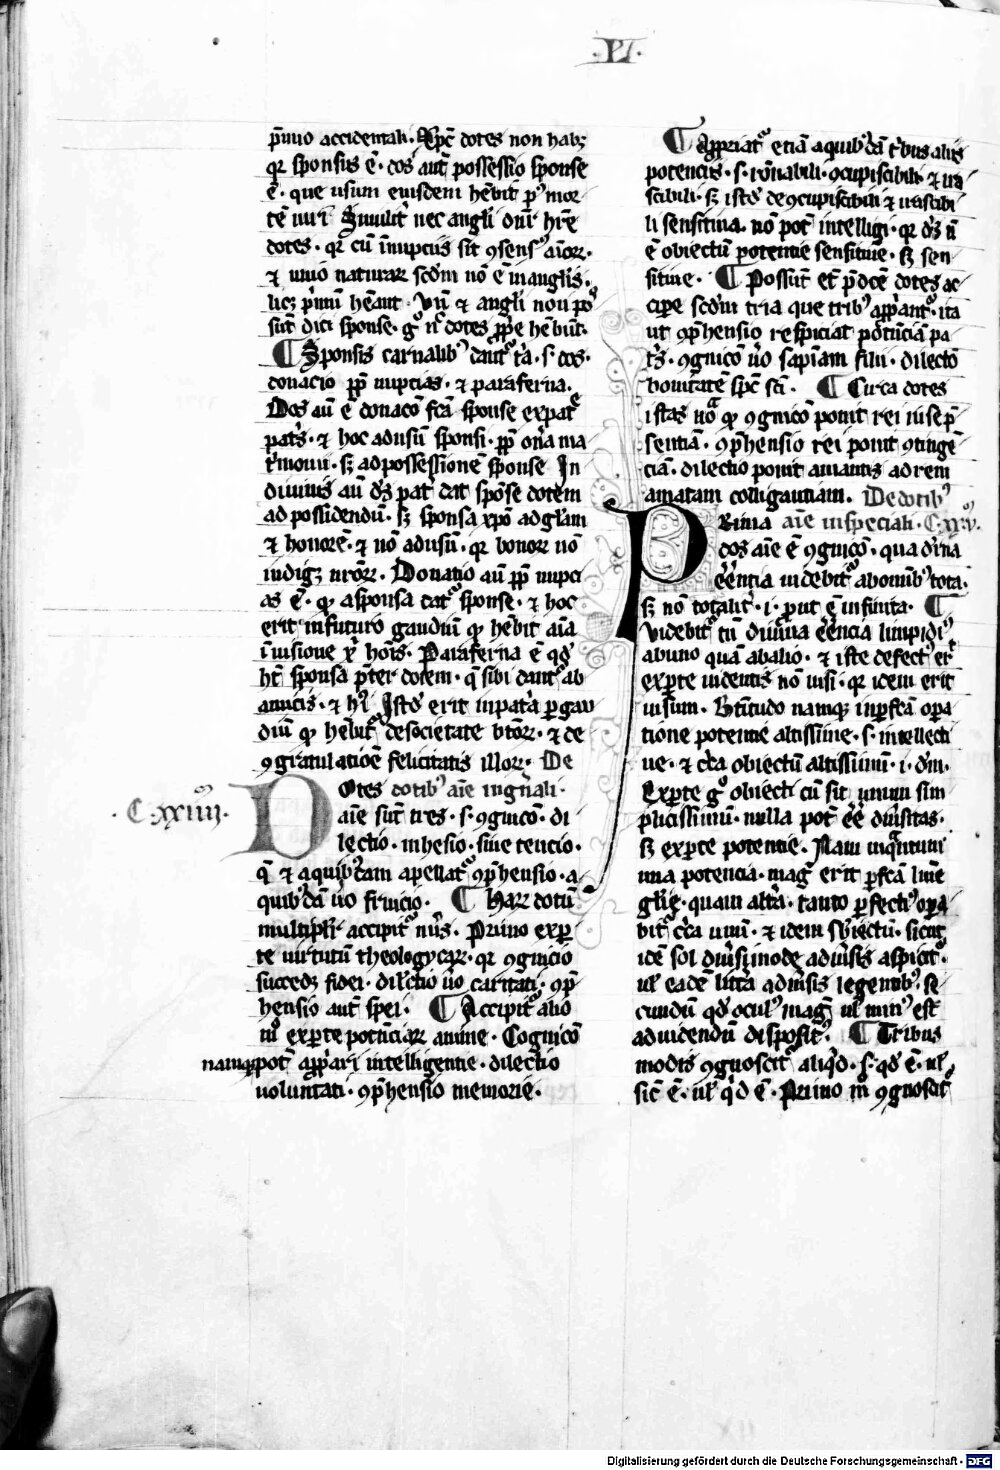 ·VI·
p̄nıo accidentali· Xp̄c dotes non habꝫ
qꝛ sponsus ē· dos aut̄ possessio sponse
ē· que usum eiusdem hēbit p9 mor
tē uiri Similit̄ nec angli dn̄r hr̄e
dotes· qꝛ cū ī nupciis sit ꝯsens9 aīoꝝ·
⁊ unio naturaꝝ scdm nō ē in anglis·
licꝫ p̄mū hēant· Vn̄ ⁊ angli non pos
sūt dici sponse· gͦ n̄ dotes ꝓp̄e hēbūt·
¶ Sponsis carnalib9 dant᷑ tͥa· s· dos·
donacio ꝓp̄ nupcias· ⁊ paraferna·
Dos aū ē donacō fc̄a sponse ex parte
patͥs· ⁊ hoc ad usū sponsi· ꝓp̄ on̄a ma
tͥmonii· sꝫ ad possessionē sponse In
diuinis aū dꝫ pat̄ dat spōse dotem
ad possidendū· sꝫ sponsa xp̄o ad gl̄am
⁊ honorē· ⁊ nō ad usū· qꝛ bonoꝝ nō
indigꝫ nr̄oꝝ· Donatio aū ꝓp̄ nupci
as ē· qͦ a sponsa dat᷑ sponse· ⁊ hoc
erit in futuro gaudiū qͦ hēbit aīa
ī uisione xͥ hoīs· Paraferna ē qd̛
ht̄ sponsa p̄ter dotem· q̄ sibi dant᷑ ab
amicis· ⁊ h9 Istd̛ erit in patͥa ꝑ gau
diū qͦ hēbit᷑ de societate btōꝝ· ⁊ de
ꝯgratulatiōe felicitatis illoꝝ· De
Dotes dotib9 aīe in gn̄ali·
·C·xxiiii·
aīe sūt tres· s· ꝯgnicō· di
lectio· inhesio· siue tencio·
q̄ ⁊ a quib9dam apellat᷑ ꝯp̄hensio· a
quib9dā ûo fruicio· ¶ Haꝝ dotū
multiplr̄ accipit᷑ nūs· Primo ex ꝑ
te uirtutū theologycaꝝ· qꝛ ꝯgnicio
succedꝫ fidei· dilectio ûo caritati· ꝯp̄
hensio aut̄ spei· ¶ Accipit᷑ alio
mͦ ex ꝑte potēciaꝝ anime· Cognicō
namqꝫ pot̄ apꝓp̄ari intelligentie· dilectio
uoluntati· ꝯp̄hensio memorie·
¶ Apꝓpriat᷑ etiā a quib9dā tͥbus aliis
potenciis· s· rōnabili· ꝯcupiscibili· ⁊ ira
scibili· sꝫ istd̛ de ꝯcupiscibili ⁊ irascibi
li sensitiua· nō pot̄ intelligi· qꝛ ds̄ n̄
ē obiectū potentie sensitiue· sꝫ sen
sitiue· ¶ Possūt et̄ p̄dc̄e dotes ac
cipe scdm tria que trib9 apꝓp̄ant᷑· ita
ut ꝯp̄hensio respiciat potēciā pa
tͥs· ꝯgnicō ûo sapīam filii· dilectō
bonitatē spc̄ sc̄i· ¶ Circa dotes
istas noͣ qͦ ꝯgnicō ponit rei in se p̄
sentiā· ꝯp̄hensio rei ponit ꝯtingē
ciā· dilectio ponit amantis ad rem
amatam colligantiam· De dotib9
Prima aīe in speciali· C· xxv·
dos aīe ē ꝯgnicō· qua diͥna
eēntia uidebit᷑ ab omīb9 tota·
sꝫ nō totalit̄· i· ꝓut ē infinita· ¶
Videbit᷑ tn̄ diuina eēncia limpidi9
ab uno quā ab alio· ⁊ iste defect9 erͭ
ex ꝑte uidentis nō uisi· qꝛ idem erit
uisum· Btītudo namqꝫ in ꝑfc̄ā oꝑa
tione potentie altissime· s· intellecti
ue· ⁊ cͥca obiectū altissimū· i· dm̄·
Ex ꝑte gͦ obiecti cū sit unum sim
plicissimū· nulla pot̄ eē diûsitas·
sꝫ ex ꝑte potentie· Nam inqͣntum
una potencia magͥ erit ꝑfc̄ā lum̄e
gl̄ie· quam altͥa· tanto ꝑfecti9 oꝑa
bit᷑ cͥca unū· ⁊ idem sb̛iectū· sicut
idē sol diûsimode a diûsis aspicit᷑·
ul̄ eadē litt̄a a diûsis legentib9· se
cundū qd̛ ocul9 magͥ ul̄ min9 est
ad uidendū disposit9· ¶ Tribus
modis ꝯgnoscit᷑ aliqͥd· s· qd̛ ē· ul̄
sic̄ ē· ul̄ qͥd ē· Primo mͦ ꝯgnoscit᷑
Digitalisierung gefördert durch die Deutsche Forschungsgemeinschaft · DFG